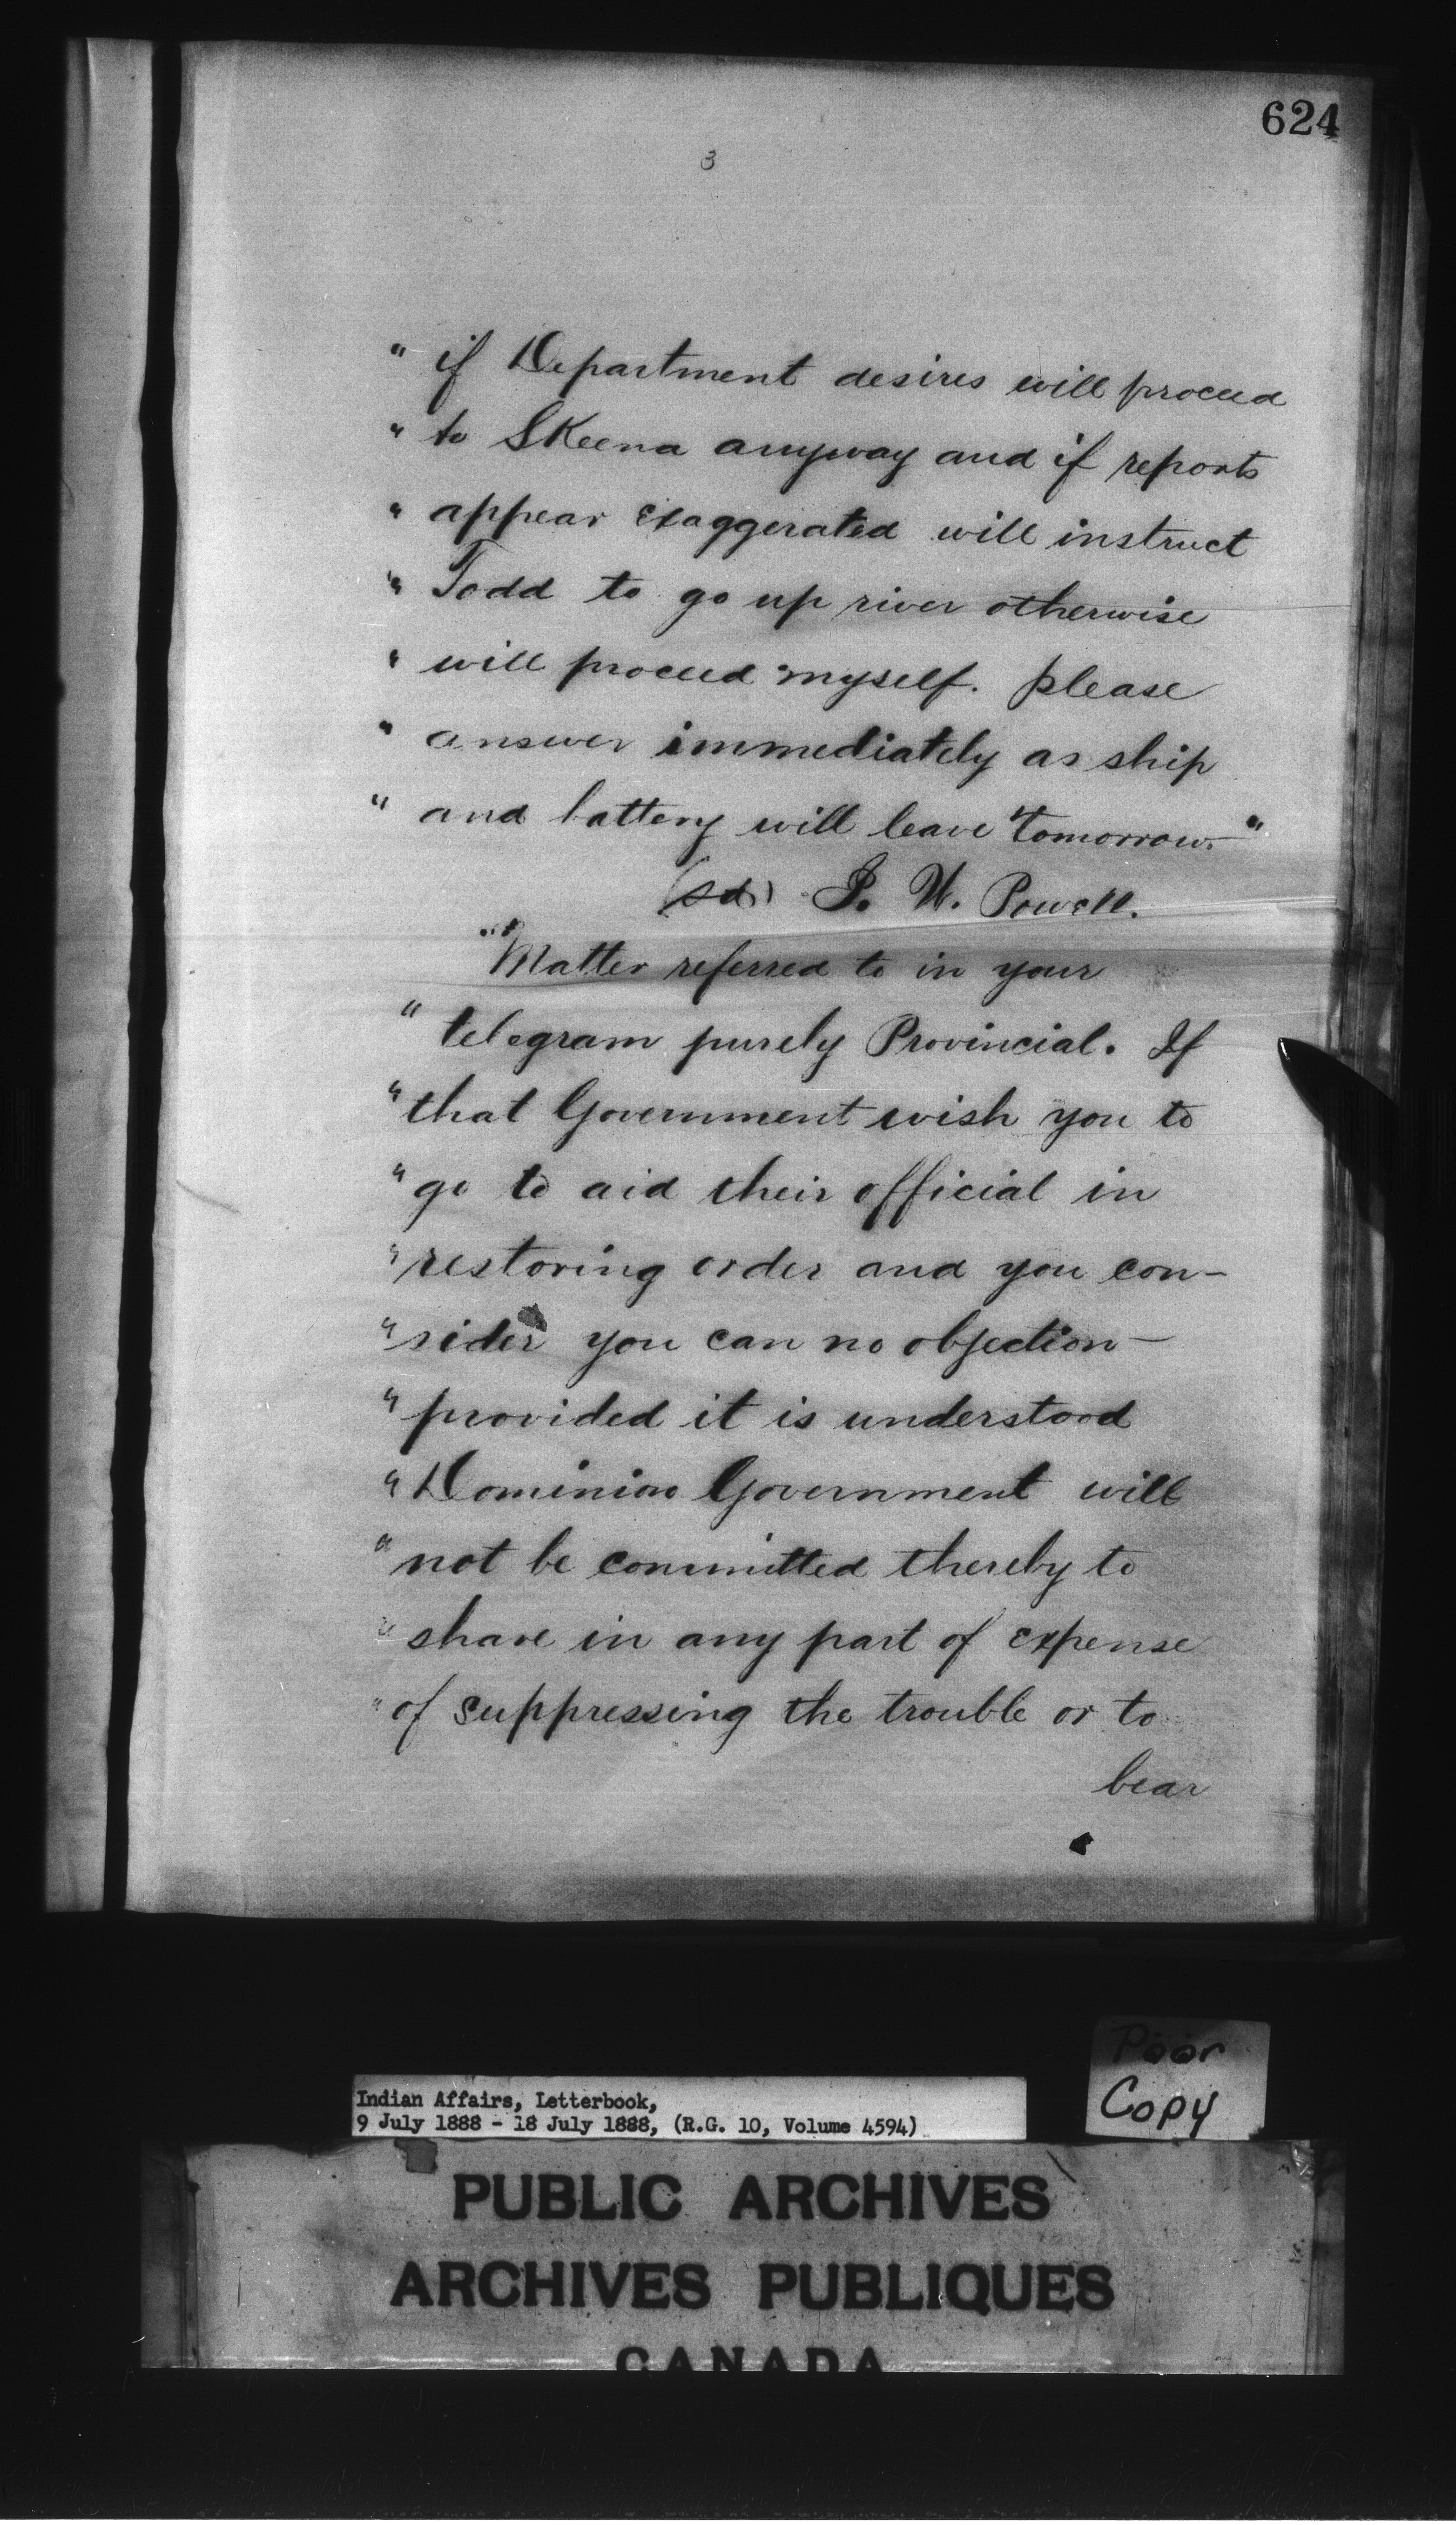 624
3
" if Department desires will proceed
" to Skeena anyway and if reports
" appear exaggerated will instruct
" Todd to go up river otherwise
" will proceed myself. please
" answer immediately as ship
" and battery will leave tomorrow."
(sd) I. W. Powell.
"Matter referred to in your
" telegram purely Provincial. If
" that Government wish you to
" go to aid their official in
" restoring order and you con-
" sider you can no objection -
" provided it is understood
" Dominion Government will
" not be committed thereby to
" share in any part of expense
" of suppressing the trouble or to
bear
Poor
Copy
Indian Affairs, Letterbook,
9 July 1888 - 18 July 1888, (R.G. 10, Volume 4594)
PUBLIC ARCHIVES
ARCHIVES PUBLIQUES
CANADA